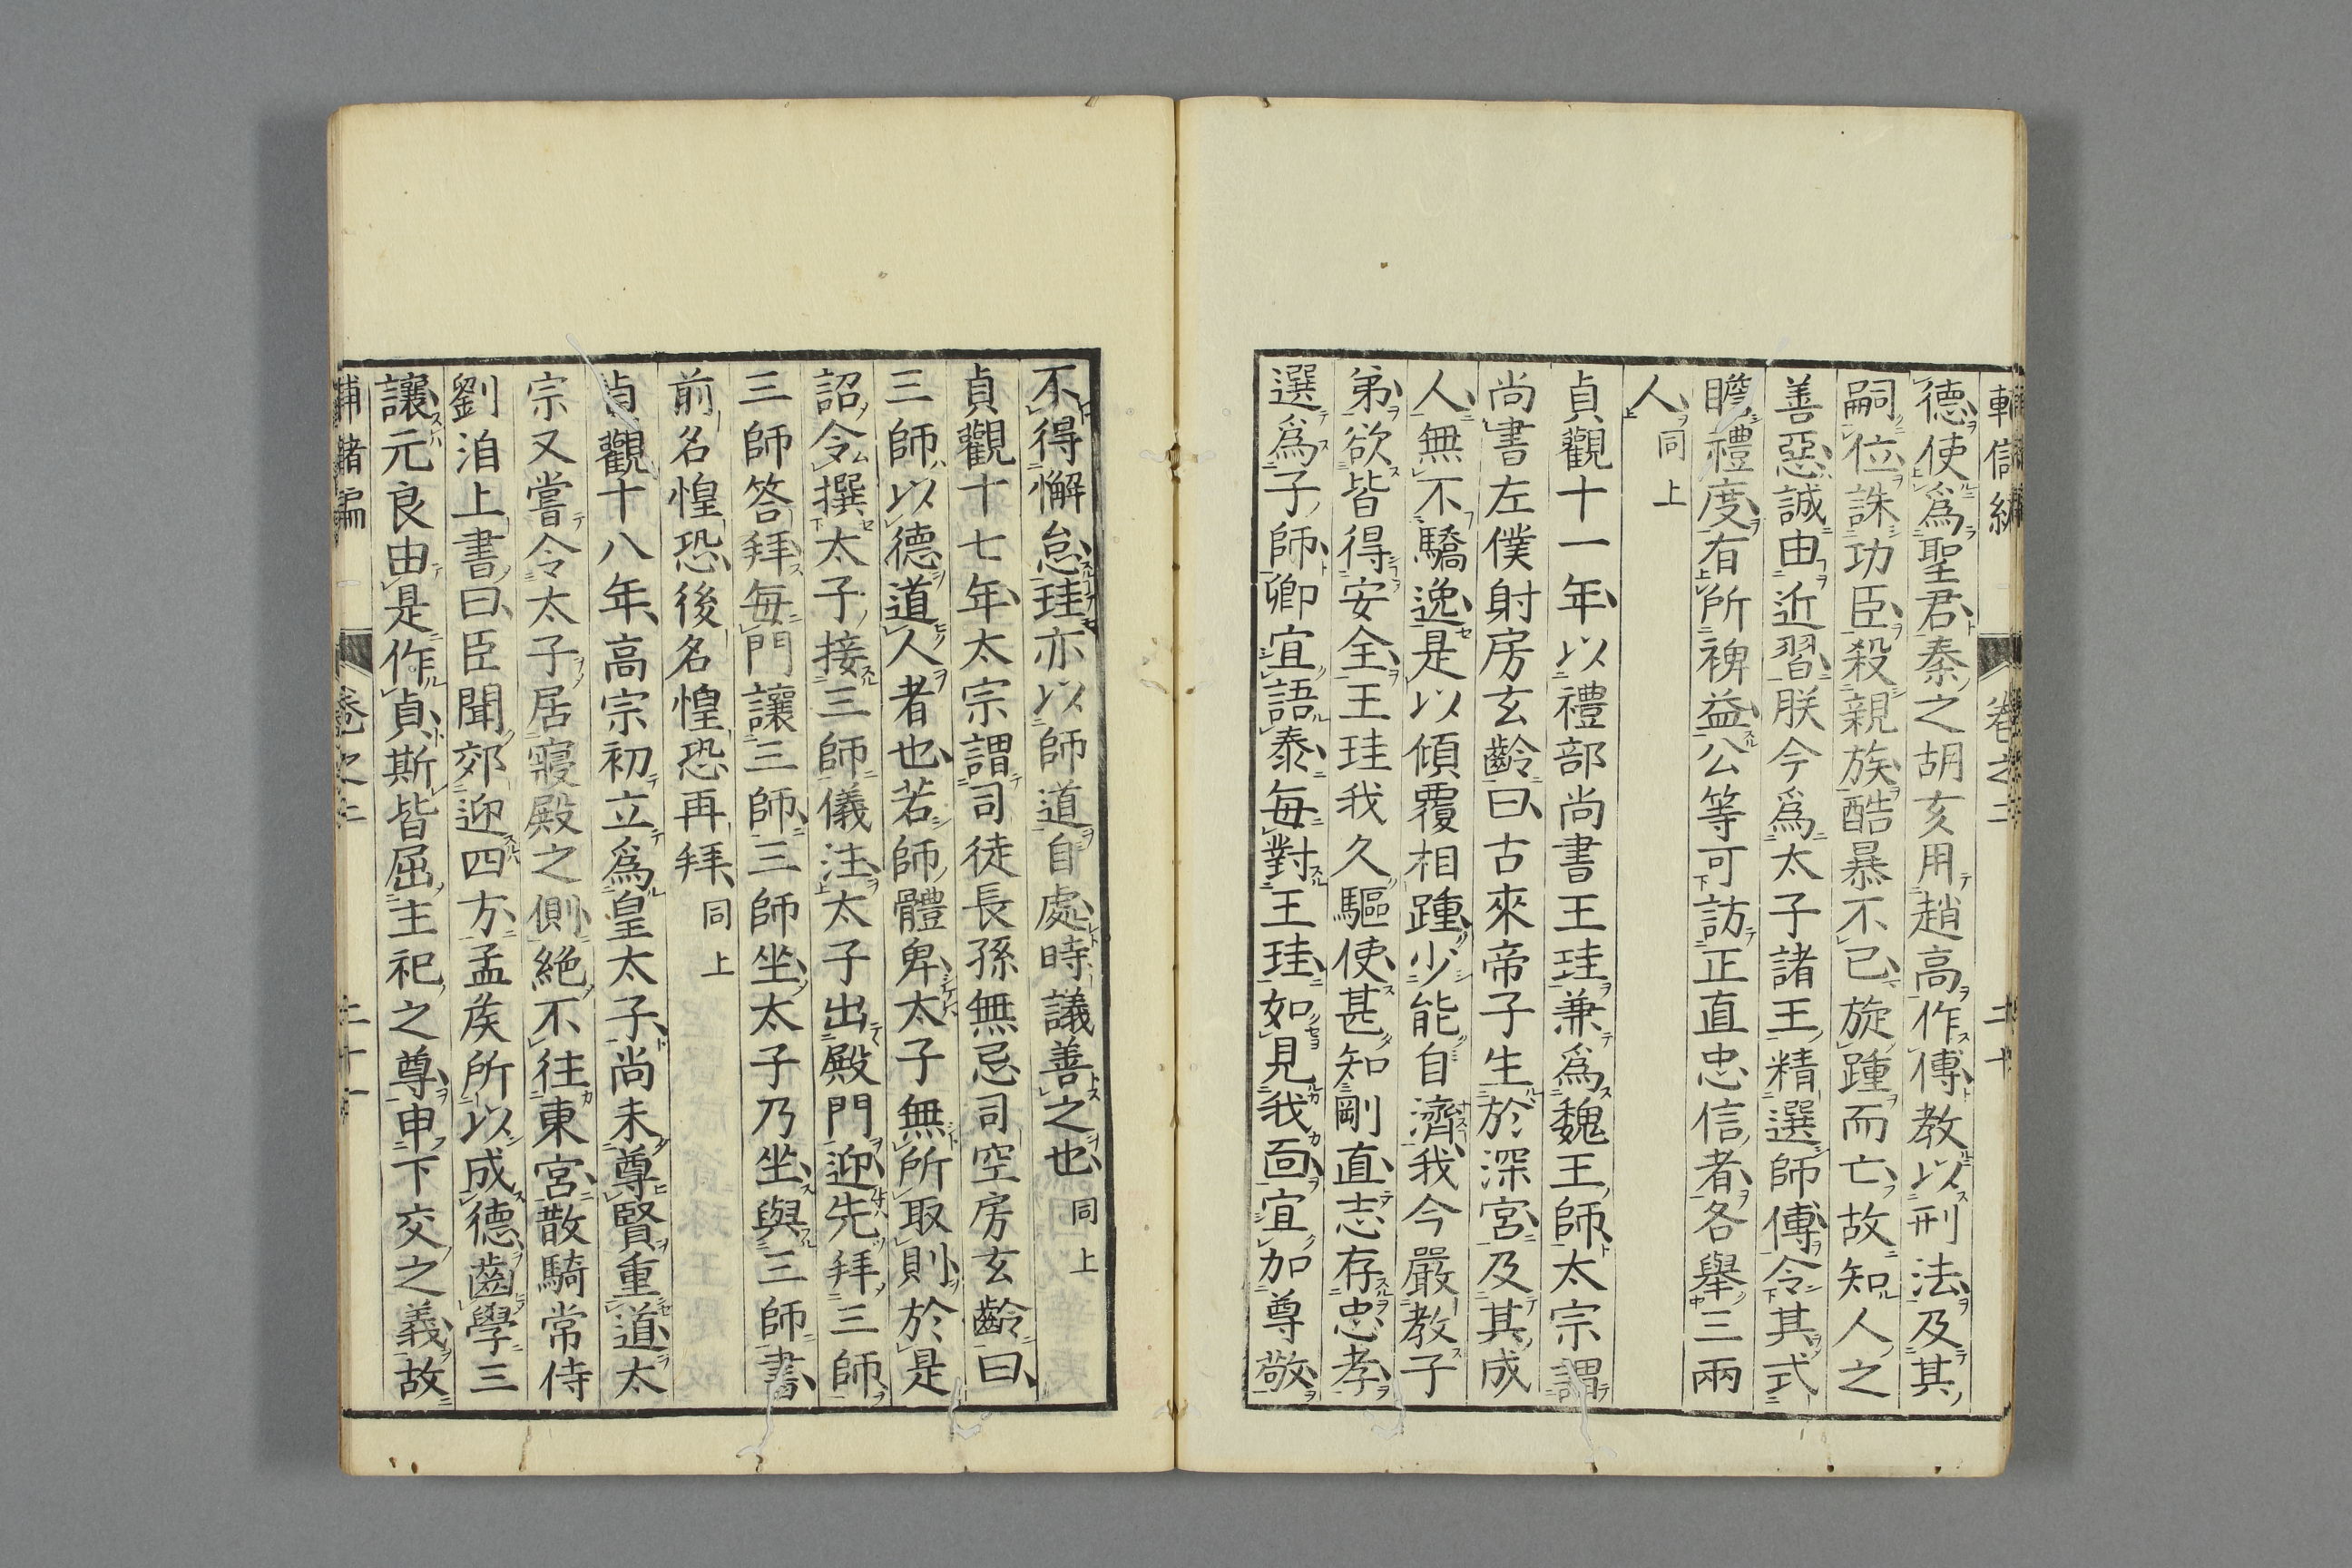 德使爲聖君秦之胡亥用趙高作傅教以刑法及其
嗣位誅功臣殺親族酷暴不已旋踵而亡故知人之
善惡誠由近習朕今爲太子諸王精選師傅令其式
瞻禮度有所裨益公等可訪正直忠信者各舉三兩
人同上
貞觀十一年以禮部尚書王珪兼爲魏王師太宗謂
尚書左僕射房玄齡曰古來帝子生於深宮及其成
人無不驕逸是以傾覆相踵少能自濟我今嚴教子
弟欲皆得安全王珪我久驅使甚知剛直志存忠孝
選爲子師卿宜語泰每對王珪如見我面宜加尊敬
不得懈怠珪亦以師道自處時議善之也同上
貞觀十七年太宗謂司徒長孫無忌司空房玄齡曰
三師以德道人者也若師體卑太子無所取則於是
詔令撰太子接三師儀注太子出殿門迎先拜三師
三師答拜每門讓三師三師坐太子乃坐與三師書
前名惶恐後名惶恐再拜同上
貞觀十八年高宗初立爲皇太子尚未尊賢重道太
宗又嘗令太子居寢殿之側絕不往東宮散騎常侍
劉洎上書曰臣聞郊迎四方孟侯所以成德齒學三
讓元良由是作貞斯皆屈主祀之尊申下交之義故
補諸編 卷之二 二十一